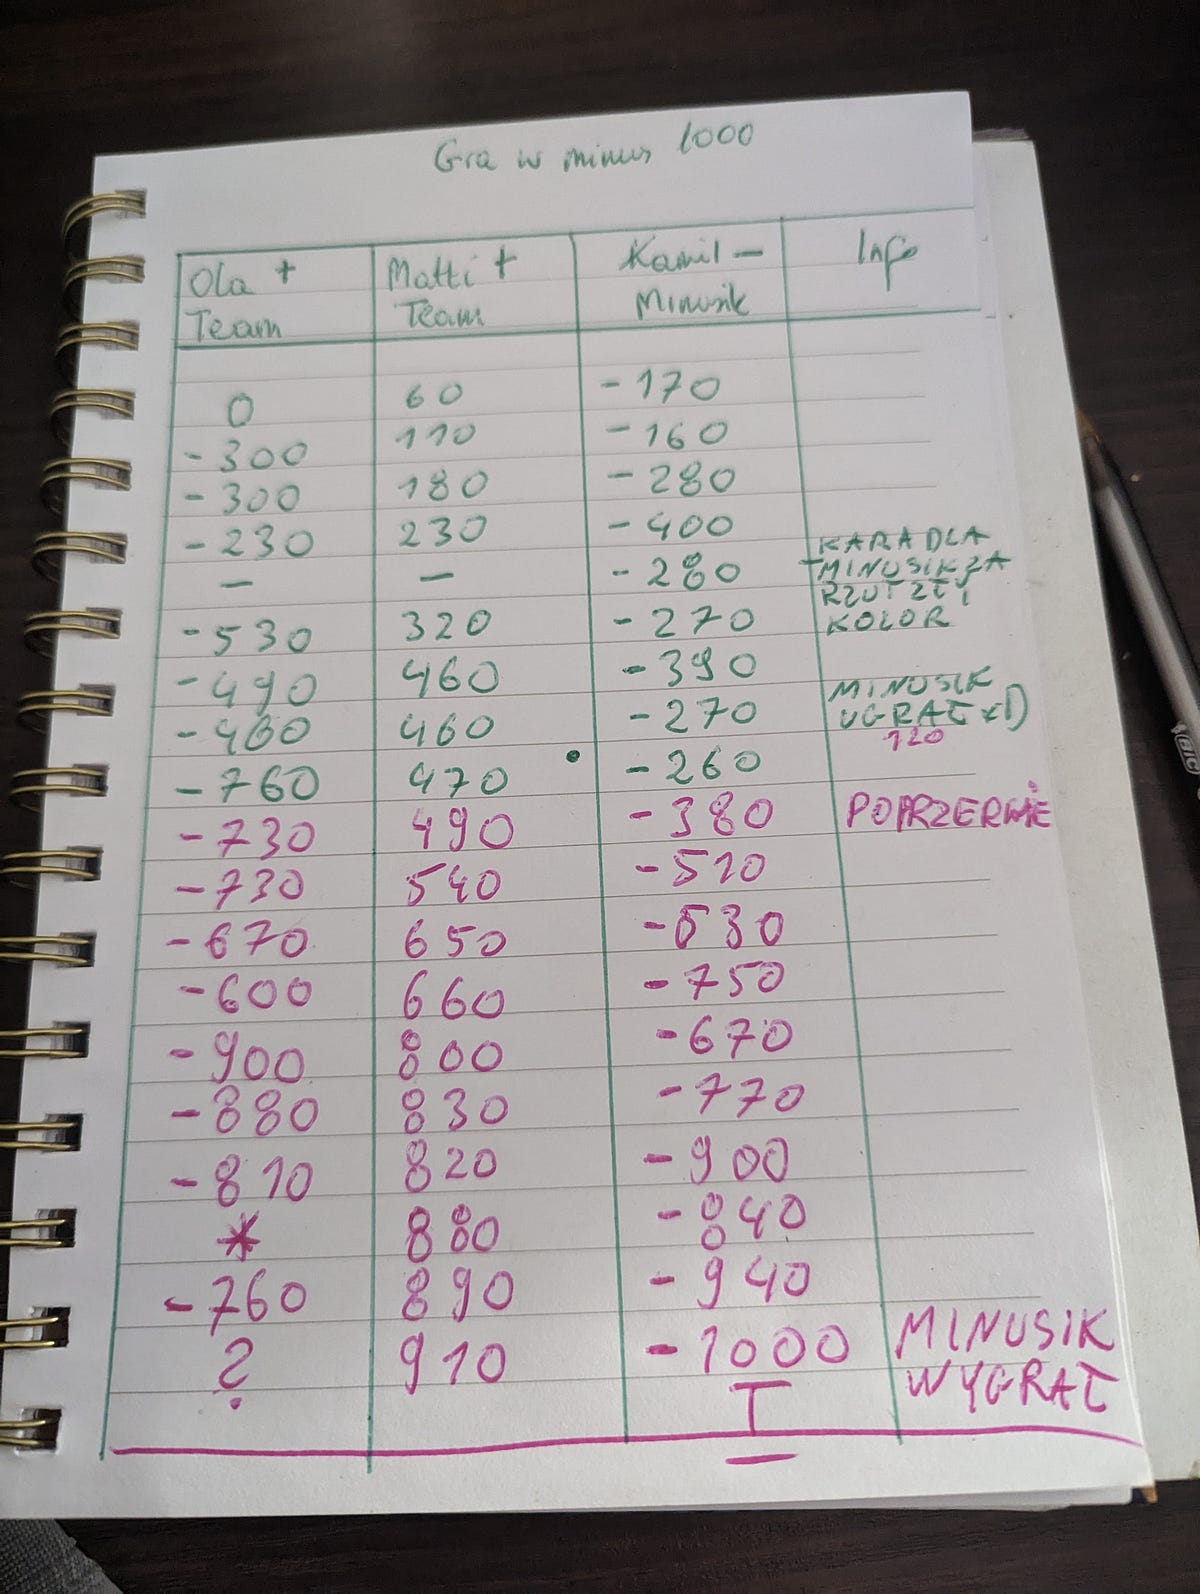 Gra w minus 1000
Ola + Matti + Kamil - Info
Team Team Minusik
0 60 -170
-300 110 -160
-300 180 -280
-230 230 -400 KARA DLA
- - -280 MINUSIK ZA
RZUT ZŁY
-530 320 -270 KOLOR
-490 460 -390 MINUSIK
-460 460 -270 UGRAŁ xD
120
-760 470 -260
-730 490 -380 PO PRZERWIE
-730 540 -510
-670 650 -630
-600 660 -750
-900 800 -670
-880 830 -770
-810 820 -900
* 880 -840
-760 890 -940
? 910 -1000 MINUSIK
WYGRAŁ